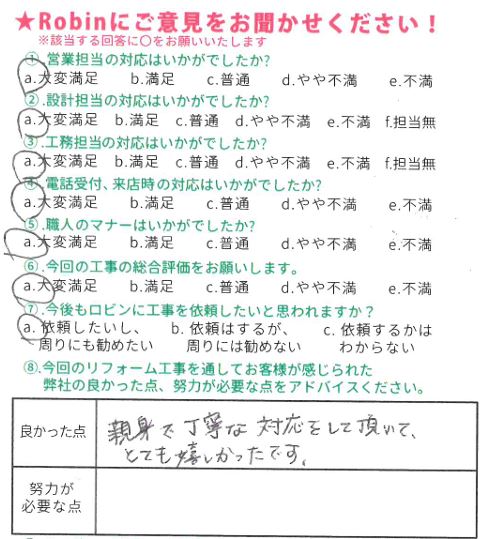 ★Robinにご意見をお聞かせください！
※該当する回答に〇をお願いいたします
①.営業担当の対応はいかがでしたか?
a.大変満足 b.満足 c.普通 d.やや不満 e.不満
②.設計担当の対応はいかがでしたか?
a.大変満足 b.満足 c.普通 d.やや不満 e.不満 f.担当無
③.工務担当の対応はいかがでしたか?
a.大変満足 b.満足 c.普通 d.やや不満 e.不満 f.担当無
④.電話受付、来店時の対応はいかがでしたか?
a.大変満足 b.満足 c.普通 d.やや不満 e.不満
⑤.職人のマナーはいかがでしたか?
a.大変満足 b.満足 c.普通 d.やや不満 e.不満
⑥.今回の工事の総合評価をお願いします。
a.大変満足 b.満足 c.普通 d.やや不満 e.不満
⑦.今後もロビンに工事を依頼したいと思われますか？
a. 依頼したいし、 b. 依頼はするが、 c. 依頼するかは
周りにも勧めたい 周りには勧めない わからない
⑧.今回のリフォーム工事を通してお客様が感じられた
弊社の良かった点、努力が必要な点をアドバイスください。
良かった点
親身で丁寧な対応をして頂いて、
とても嬉しかったです。
努力が
必要な点